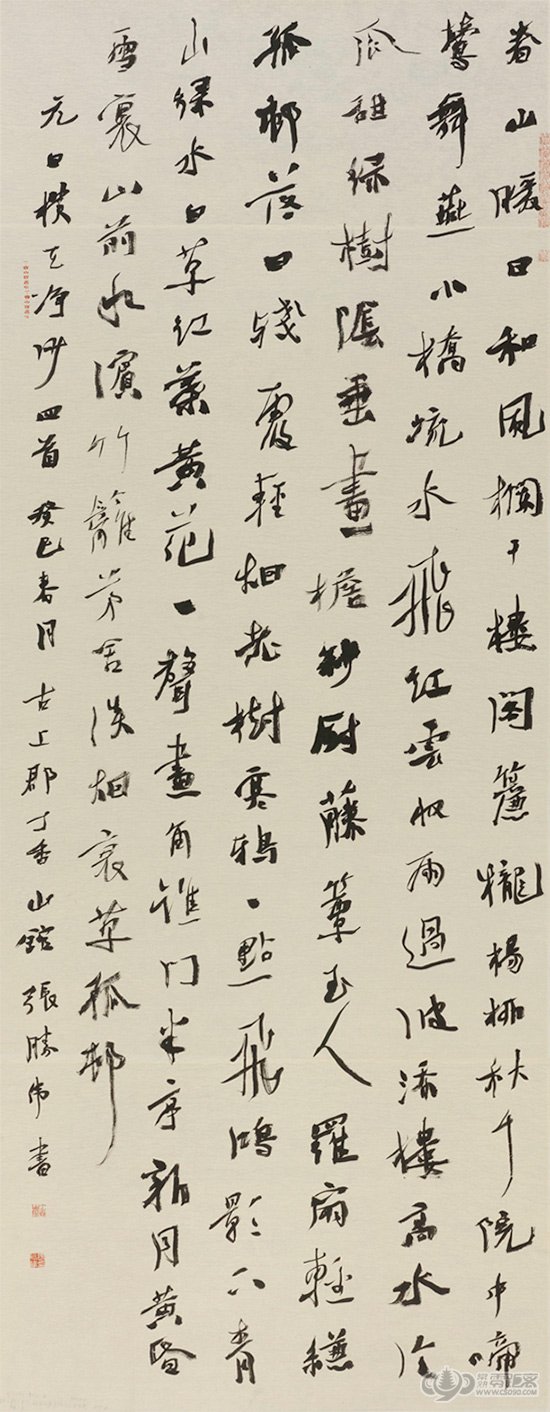 春山暖日和風欄干樓閣簾櫳楊柳秋千院中啼
鶯舞燕小橋流水飛紅雲收雨過波添樓高水冷
瓜甜綠樹陰垂畫檐紗厨藤簟玉人羅扇輕縑
孤邨落日殘霞輕烟老樹寒鴉一點飛鴻影下青
山綠水白草紅葉黃花一聲畫角譙門半亭新月黃昏
雪裏山前水濱竹籬茅舍淡烟衰草孤邨
元白樸天净沙四首 癸巳春月 古上郡丁香山館 張勝偉書
常熟零距离
WWW.CS090.COM